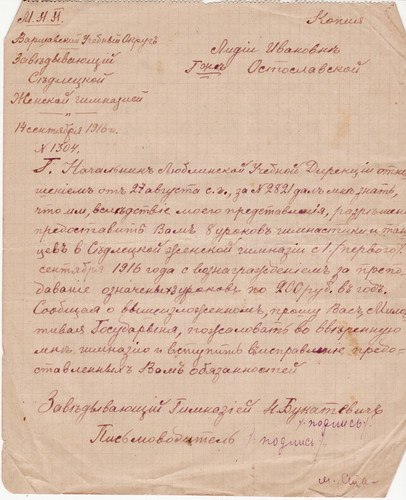 М. Н. П.
Копия
Варшавский Учебный Округъ
Завѣдывающий
Сѣдлецкой
Женской гимназией
Лидии Ивановнѣ
Г-жѣ Остославской
14 сентября 1916 г.
№ 1304.
Г. Начальникъ Люблинской Учебной Дирекции отно-
шениемъ отъ 27 августа с. г., за № 2821 далъ мнѣ знать,
что имъ, вслѣдствие моего представления, разрѣшено
предоставить Вамъ 8 уроковъ гимнастики и тан-
цевъ в Сѣдлецкой женской гимназии с 1 (первого)
сентября 1916 года с вознаграждениемъ за препо-
давание означенныхъ уроковъ по 200 руб. въ годъ.
Сообщая о вышеизложенномъ, прошу Васъ, Мило-
стивая Государыня, пожаловать во ввѣренную
мнѣ гимназию и вступить в исправление предо-
ставленныхъ Вамъ обязанностей
Завѣдывающий Гимназией Н. Бунатевичъ
/подпись/.
Письмоводитель /подпись/.